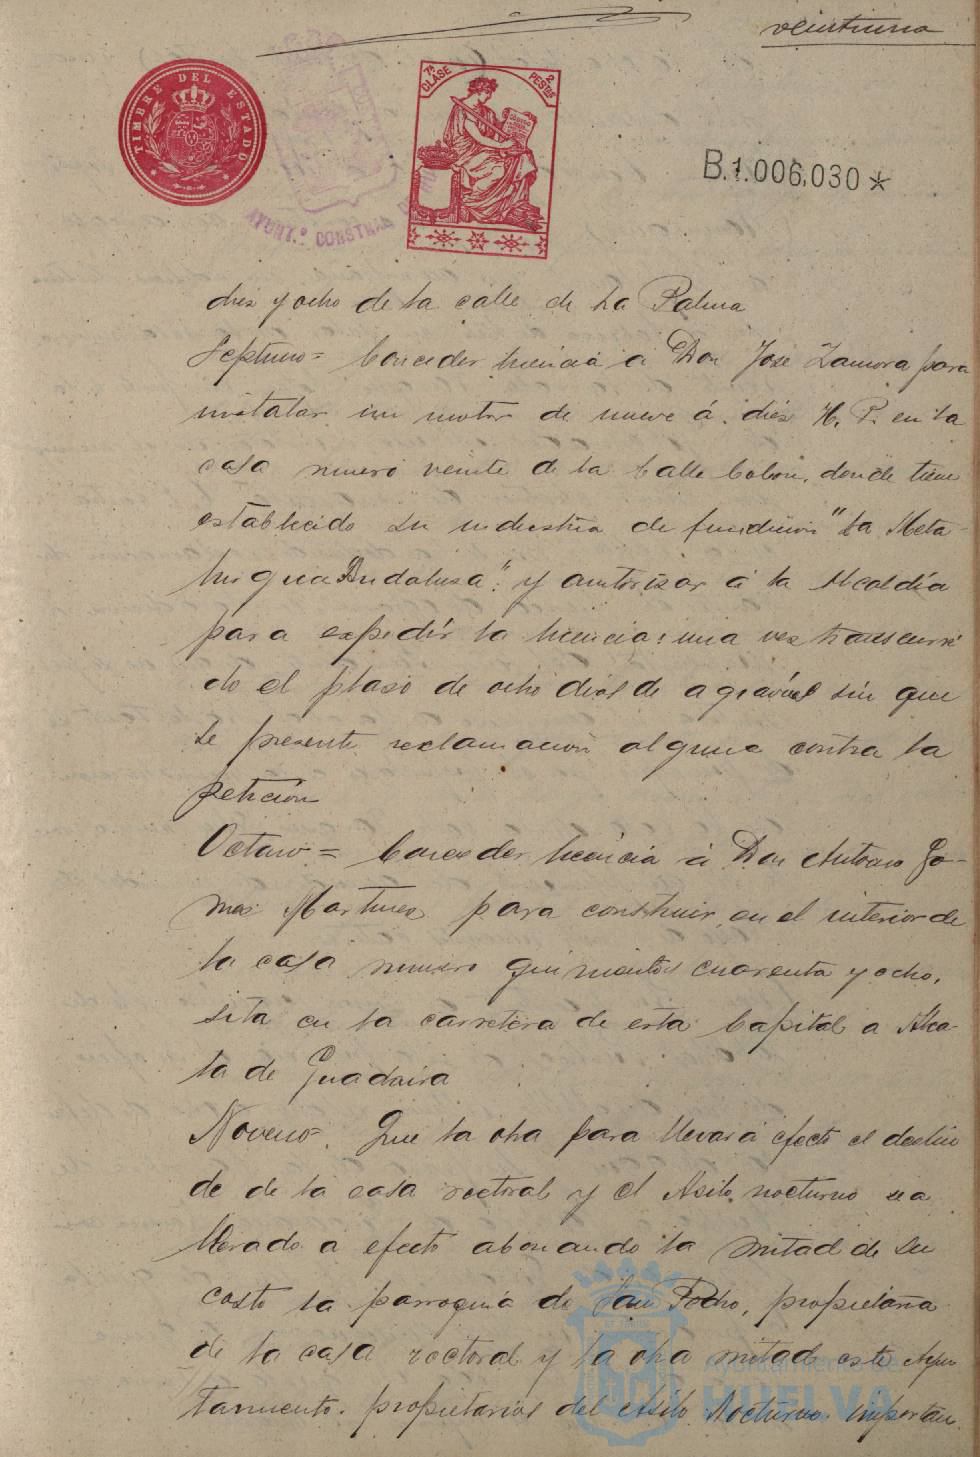 veintiuno
TIMBRE DEL ESTADO
7ª CLASE 2 PESTAS
B.1.006.030*
AYUNT.º CONSTNAL
diez y ocho de la calle de La Palma
Septimo = Conceder licencia á Don José Zamora para
instalar un motor de nueve á diez H. P. en la
casa numero veinte de la Calle Colon, donde tiene
establecido su industria de fundicion "La Meta-
lurgica Andaluza". y autorizar á la Alcaldía
para expedir la licencia: una vez transcurri
do el plazo de ocho dias de agravios sin que
se presente reclamacion alguna contra la
petición
Octavo = Conceder licencia á Don Antonio Go-
mez Martinez para construir en el interior de
la casa numero quinientos cuarenta y ocho,
sita en la carretera de esta Capital a Alca-
la de Guadaira
Noveno = Que la obra para llevar á efecto el deslin
de de la casa rectoral y el Asilo nocturno sea
llevado a efecto abonando la mitad de su
costo la parroquia de San Pedro, propietaria
de la casa rectoral y la otra mitad este Ayun
tamiento. propietarios del Asilo Nocturno. importan
ayuntamiento de
HUELVA